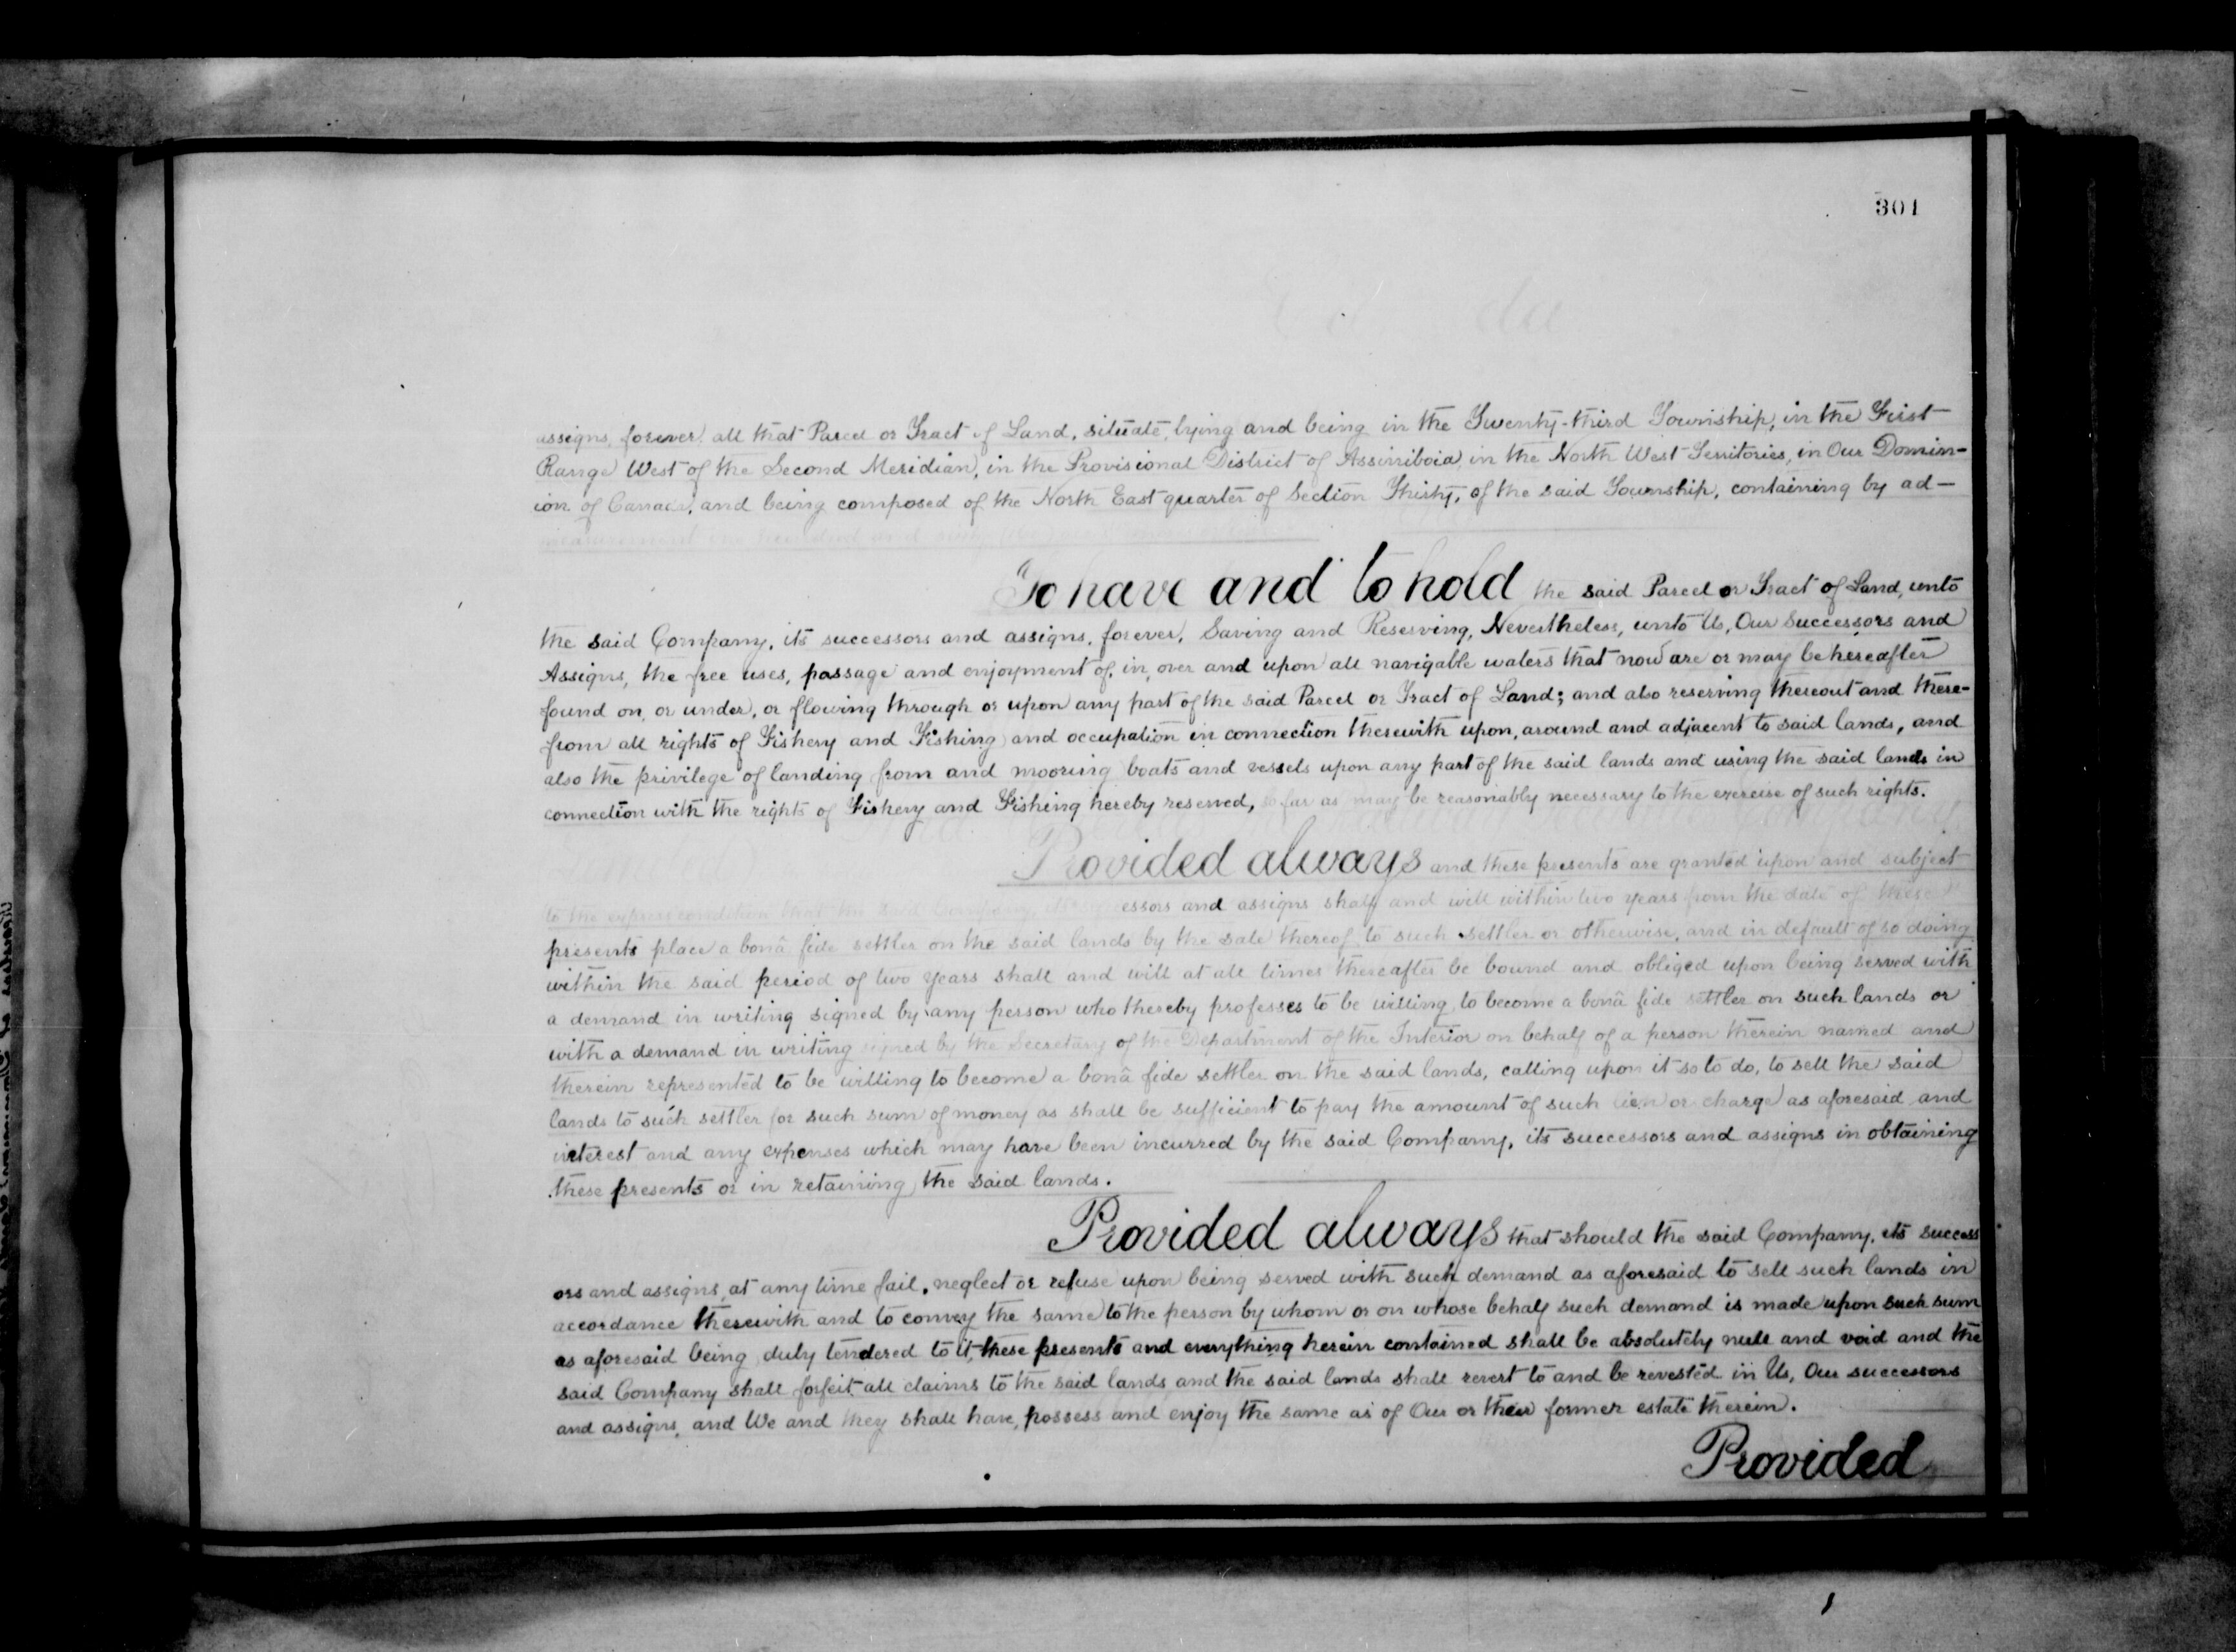 301
assigns, forever, all that Parcel or Tract of Land, situate, lying and being in the Twenty-third Township, in the First
Range West of the Second Meridian, in the Provisional District of Assiniboia, in the North West Territories, in Our Domin-
ion of Canada, and being composed of the North East quarter of Section Thirty, of the said Township, containing by ad-
measurement one hundred and sixty
To have and to hold the said Parcel or Tract of Land, unto
the said Company, its successors and assigns, forever, Saving and Reserving, Nevertheless, unto Us, Our Successors and
Assigns, the free uses, passage and enjoyment of, in, over and upon all navigable waters that now are or may be hereafter
found on, or under, or flowing through or upon any part of the said Parcel or Tract of Land; and also reserving thereout and there-
from all rights of Fishery and Fishing and occupation in connection therewith upon, around and adjacent to said lands, and
also the privilege of landing from and mooring boats and vessels upon any part of the said lands and using the said lands in
connection with the rights of Fishery and Fishing hereby reserved, so far as may be reasonably necessary to the exercise of such rights.
Provided always and these presents are granted upon and subject
to the express condition that the said Company, its successors and assigns shall and will within two years from the date of these
presents place a bonâ fide settler on the said lands by the sale thereof to such settler or otherwise, and in default of so doing
within the said period of two years shall and will at all times thereafter be bound and obliged upon being served with
a demand in writing signed by any person who thereby professes to be willing to become a bonâ fide settler on such lands or
with a demand in writing signed by the Secretary of the Department of the Interior on behalf of a person therein named and
therein represented to be willing to become a bonâ fide settler on the said lands, calling upon it so to do, to sell the said
lands to such settler for such sum of money as shall be sufficient to pay the amount of such lien or charge as aforesaid and
interest and any expenses which may have been incurred by the said Company, its successors and assigns in obtaining
these presents or in retaining the said lands.
Provided always that should the said Company, its success
ors and assigns, at any time fail, neglect or refuse upon being served with such demand as aforesaid to sell such lands in
accordance therewith and to convey the same to the person by whom or on whose behalf such demand is made upon such sum
as aforesaid being duly tendered to it, these presents and everything herein contained shall be absolutely null and void and the
said Company shall forfeit all claims to the said lands and the said lands shall revert to and be revested in Us, Our successors
and assigns, and We and they shall have, possess and enjoy the same as of Our or their former estate therein.
Provided